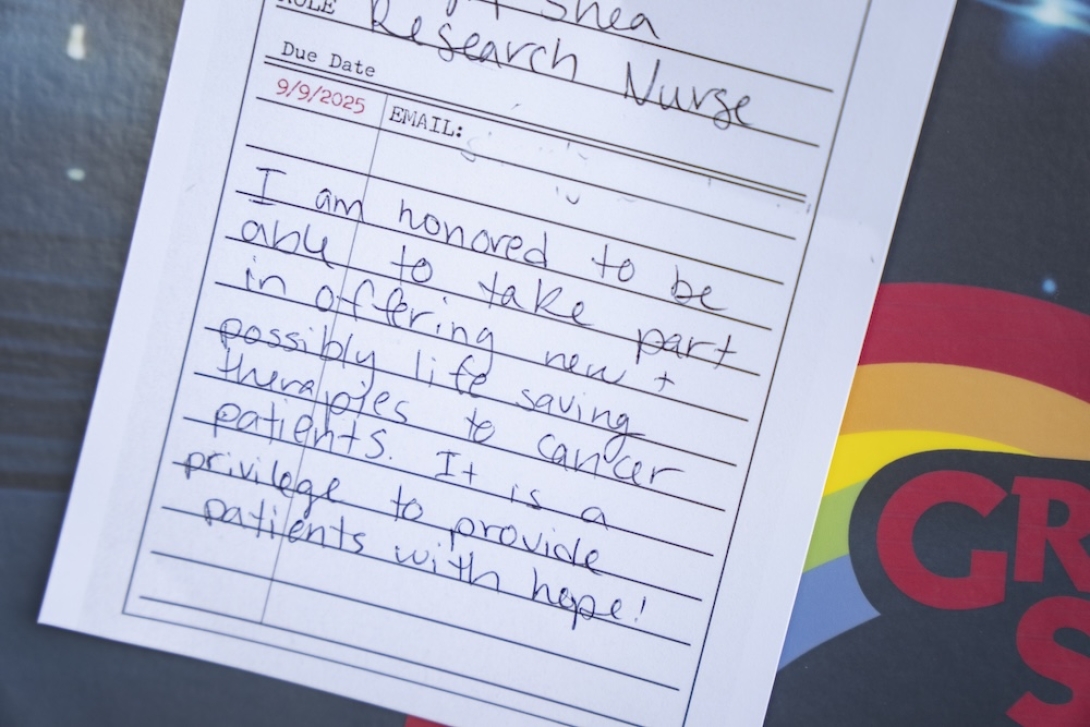 Shea
ROLE Research Nurse
Due Date
9/9/2025 EMAIL:
I am honored to be
able to take part
in offering new +
possibly life saving
therapies to cancer
patients. It is a
privilege to provide
patients with hope!
GR
S